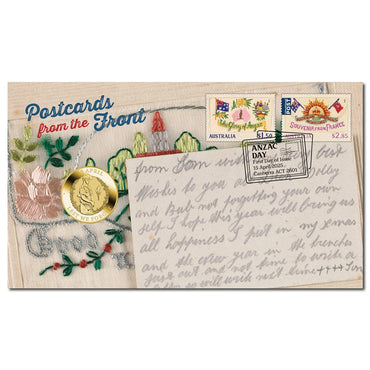 Postcards
from the
Front
The Glory of Anzac
AUSTRALIA
$1.50
SOUVENIR FROM FRANCE
$2.85
ANZAC
DAY
First Day of Issue
15 April 2025
Canberra ACT 2601
APRIL
LEST WE FORGET
Good
from Tom with best
Wishes to you
and Bub not forgetting your own
self I hope this year will bring us
all happiness I put in my xmas
and the new year in the trenches
just out and not time to write a
will write next time ++++